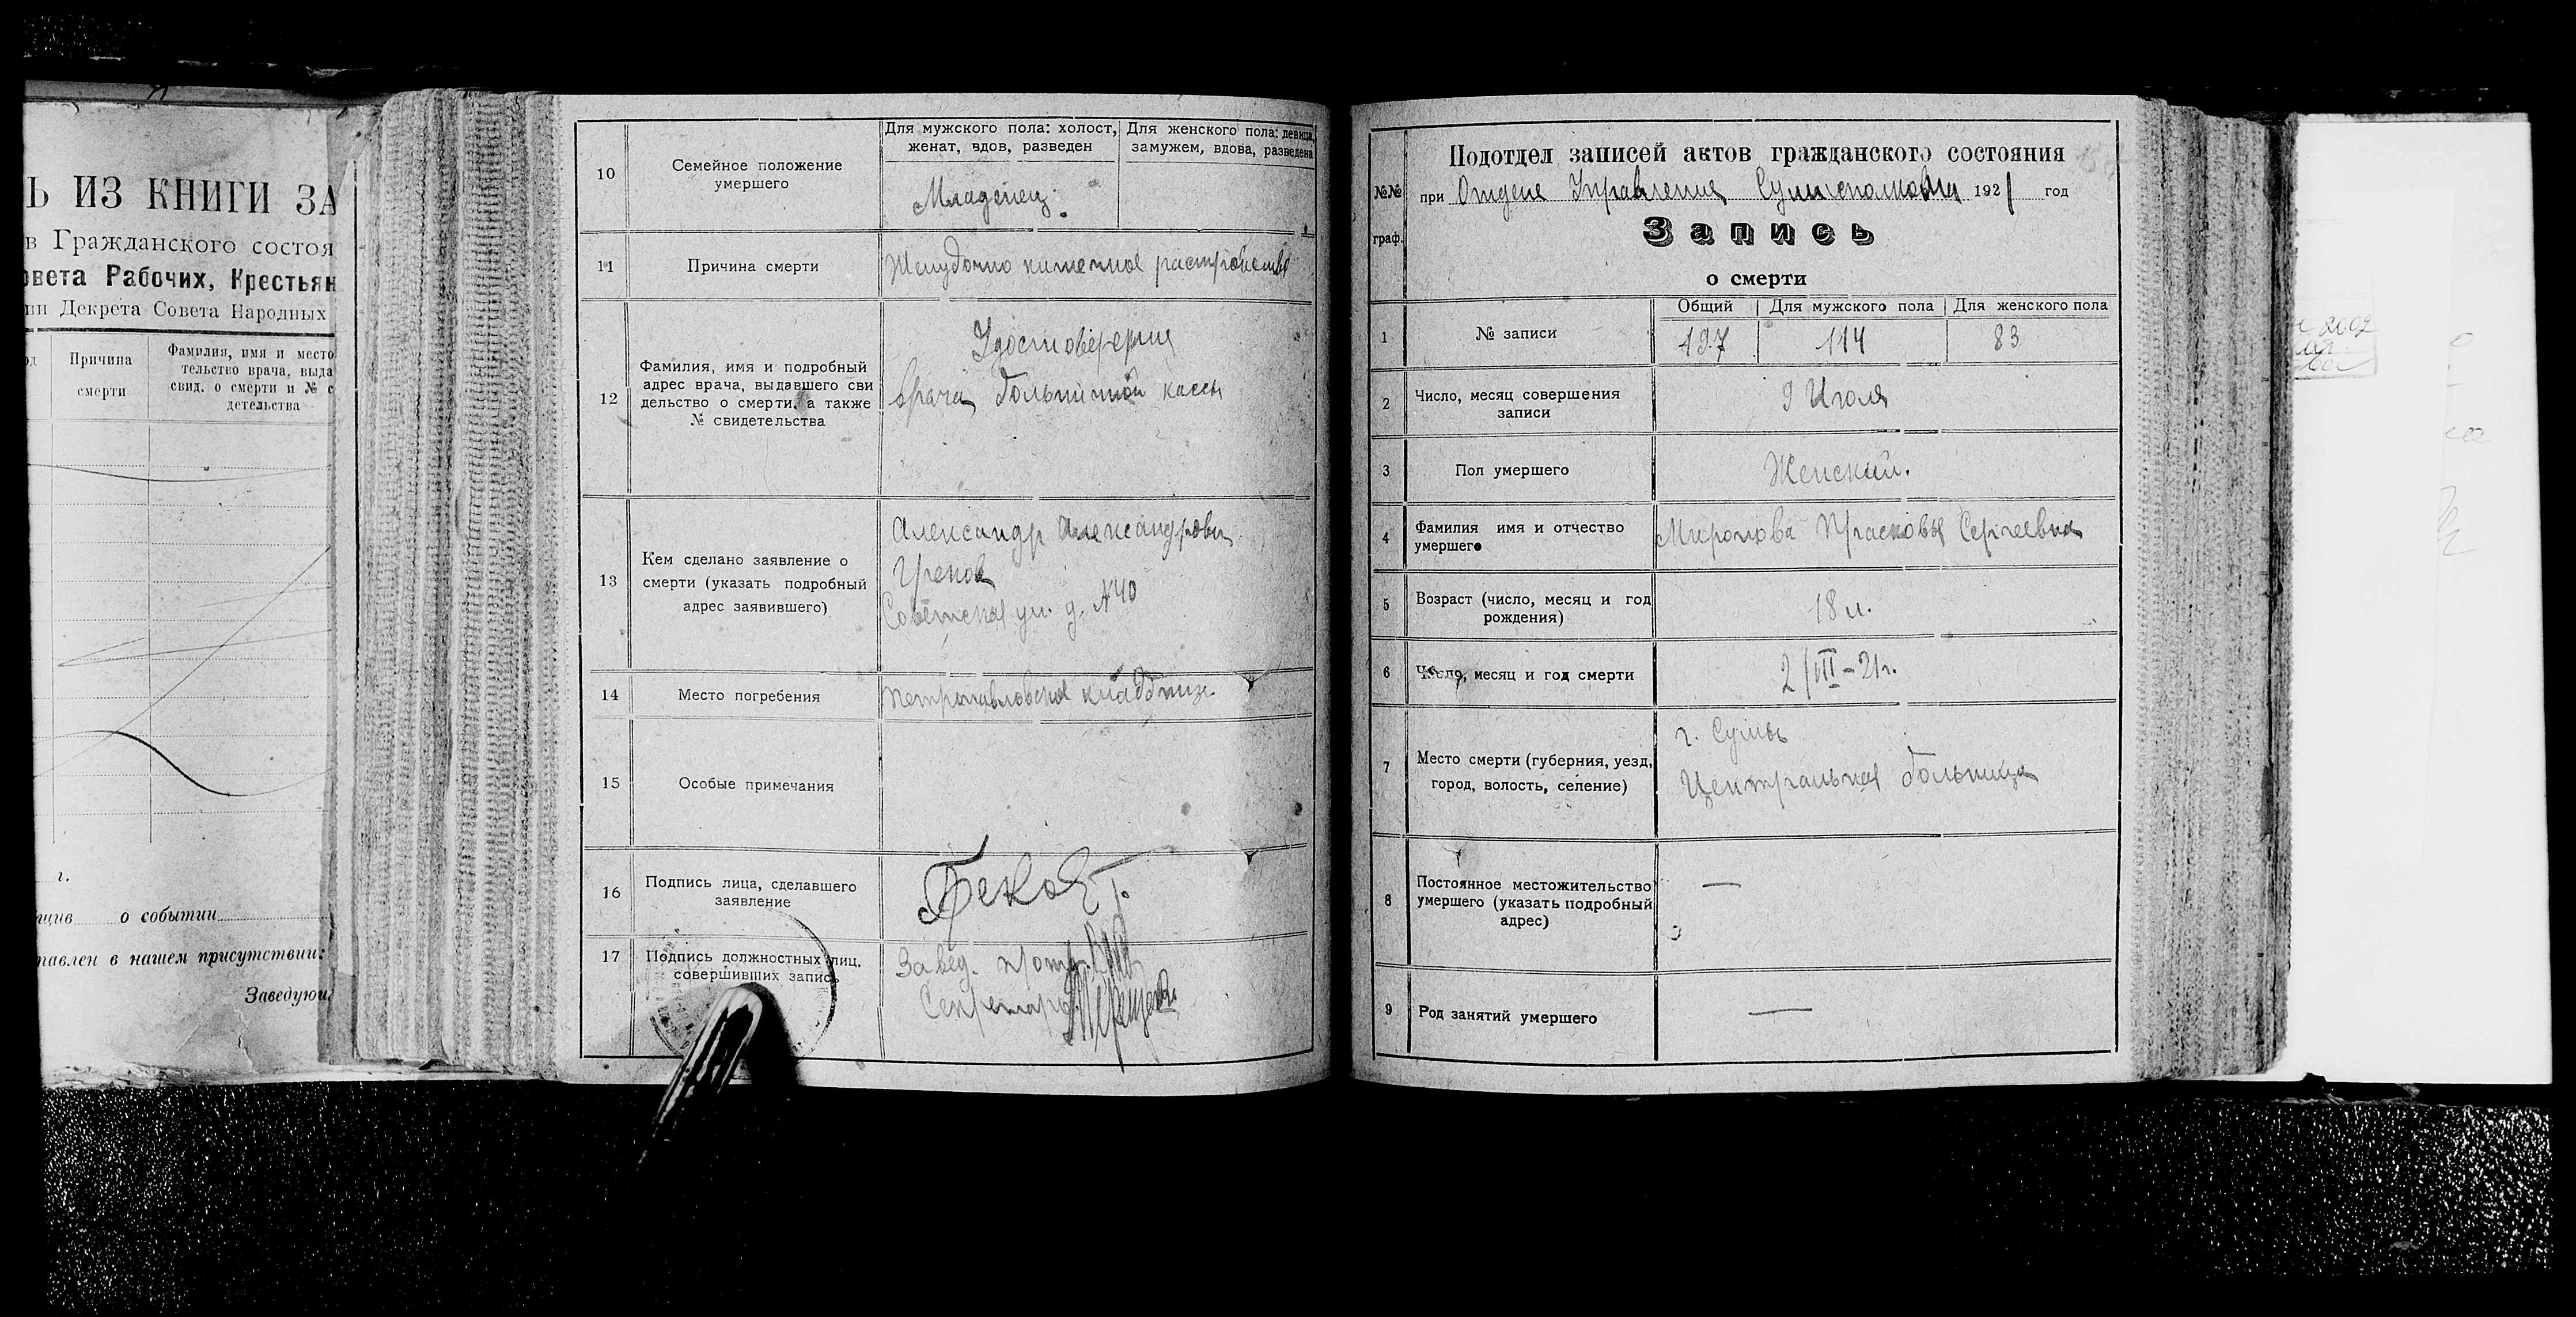 Ь ИЗ КНИГИ ЗА
в Гражданского состоя
овета Рабочих, Крестьян
ии Декрета Совета Народных
Причина смерти
Фамилия, имя и место
тельство врача, выда
свид. о смерти и № с
детельства
г.
о событии
тавлен в нашем присутствии:
Заведующ
10
Семейное положение
умершего
Для мужского пола: холост,
женат, вдов, разведен
Для женского пола: девица,
замужем, вдова, разведена
Младенец
11
Причина смерти
Желудочно кишечное расстройство
12
Фамилия, имя и подробный
адрес врача, выдавшего сви
дельство о смерти, а также
№ свидетельства
Удостоверения
врача больничной кассы
13
Кем сделано заявление о
смерти (указать подробный
адрес заявившего)
Александр Александрович
Греков
Советская ул. д. №40
14
Место погребения
Петропавловское кладбище
15
Особые примечания
16
Подпись лица, сделавшего
заявление
17
Подпись должностных лиц,
совершивших запись
Завед.
Секретарь
№№
граф.
Подотдел записей актов гражданского состояния
при Отделе Управления 1921 год
Запись
о смерти
1
№ записи
Общий
Для мужского пола
Для женского пола
197
114
83
2
Число, месяц совершения
записи
9 Июля
3
Пол умершего
Женский.
4
Фамилия имя и отчество
умершего
Миронова Прасковья Сергеевна
5
Возраст (число, месяц и год
рождения)
18 л.
6
Число, месяц и год смерти
2/III-21г.
7
Место смерти (губерния, уезд,
город, волость, селение)
г. Сумы
Центральная больница
8
Постоянное местожительство
умершего (указать подробный
адрес)
—
9
Род занятий умершего
—
2002